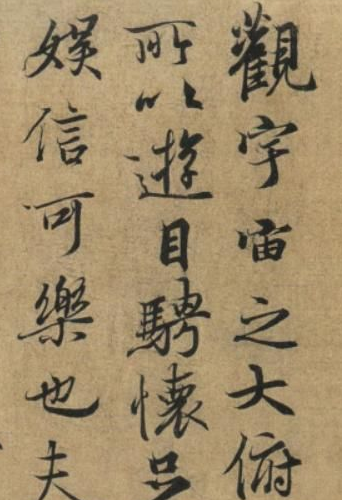 觀宇宙之大俯
所以遊目騁懷足
娛信可樂也夫